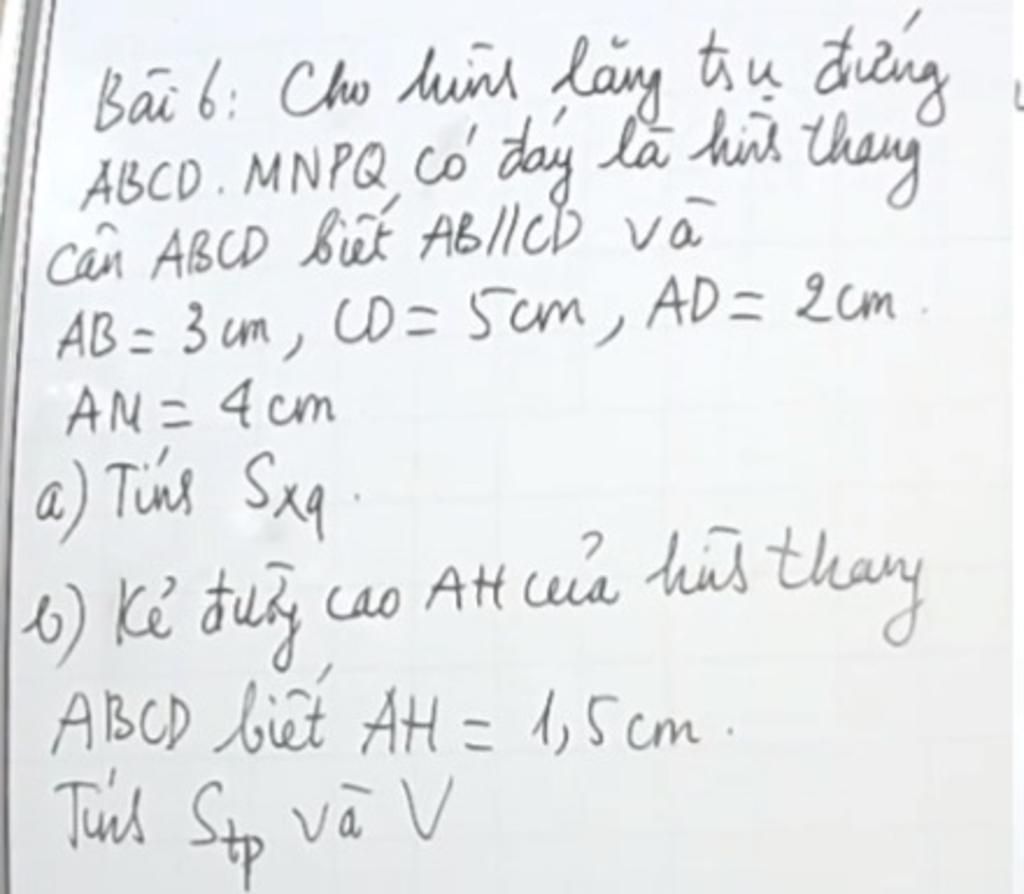 Bài 6: Cho hình lăng trụ đứng
ABCD.MNPQ có đáy là hình thang
cân ABCD biết AB//CD và
AB = 3cm, CD = 5cm, AD = 2cm.
AM = 4cm
a) Tính Sxq.
b) Kẻ đường cao AH của hình thang
ABCD biết AH = 1,5cm.
Tính Stp và V